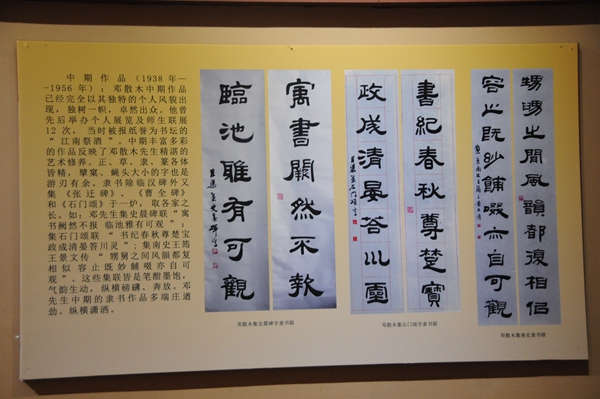 中期作品(1938年—
-1956年):邓散木中期作品
已经完全以其独特的个人风貌出
现,独树一帜,卓然出众。他曾
先后举办个人展览及师生联展
12次,当时被报纸誉为书坛的
“江南祭酒”。中期丰富多彩
的作品反映了邓散木先生精湛的
艺术修养。正、草、隶、篆各体
皆精,擘窠、蝇头大小的字也是
游刃有余。隶书除临汉碑外又
集《张迁碑》、《曹全碑》
和《石门颂》于一炉,取各家之
长。如:邓先生集史晨碑联“寓
书阙然不报 临池雅有可观”;
集石门颂联“书纪春秋尊楚宝
政成清晏答川灵”;集南史王筠
王景文传“甥舅之间风韻都复
相似 容止既妙餔啜亦自可
观”。这些集联皆是笔酣墨饱,
气韵生动,纵横磅礴、奔放。邓
先生中期的隶书作品多端庄遒
劲、纵横潇洒。
寓書闕然不報
臨池雅有可觀
書紀春秋尊楚寶
政成清晏答川靈
甥舅之間風韻都復相侣
容止既妙餔啜亦自可觀
邓散木集史晨碑字隶书联
邓散木集石门颂字隶书联
邓散木集南史隶书联